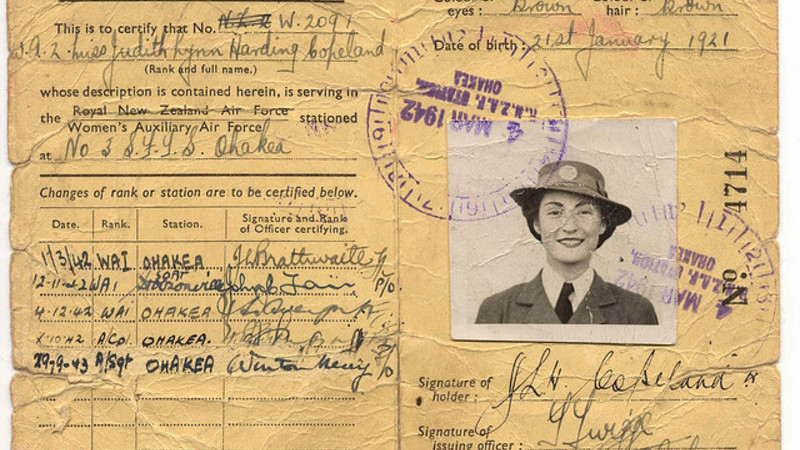 This is to certify that No. N.Z.R W. 2091
W.A.2. Miss Judith Lynn Harding Copeland
(Rank and full name.)
whose description is contained herein, is serving in
Royal New Zealand Air Force
the stationed
Women's Auxiliary Air Force
at No 3 S.F.T.S. Ohakea
Changes of rank or station are to be certified below.
Date. Rank. Station. Signature and Rank of Officer certifying.
1/3/42 WAI OHAKEA
12-11-42 WAI
4-12-42 WAI OHAKEA
10/42 A/Cpl. OHAKEA.
29-9-43 A/Sgt OHAKEA
Colour of eyes: brown Colour of hair: brown
Date of birth: 21st January 1921
R.N.Z.A.F. STATION,
OHAKEA
4 MAR 1942
No 4714
R.N.Z.A.F. STATION,
OHAKEA
4 MAR 1942
Signature of
holder: J L H Copeland
Signature of
issuing officer: